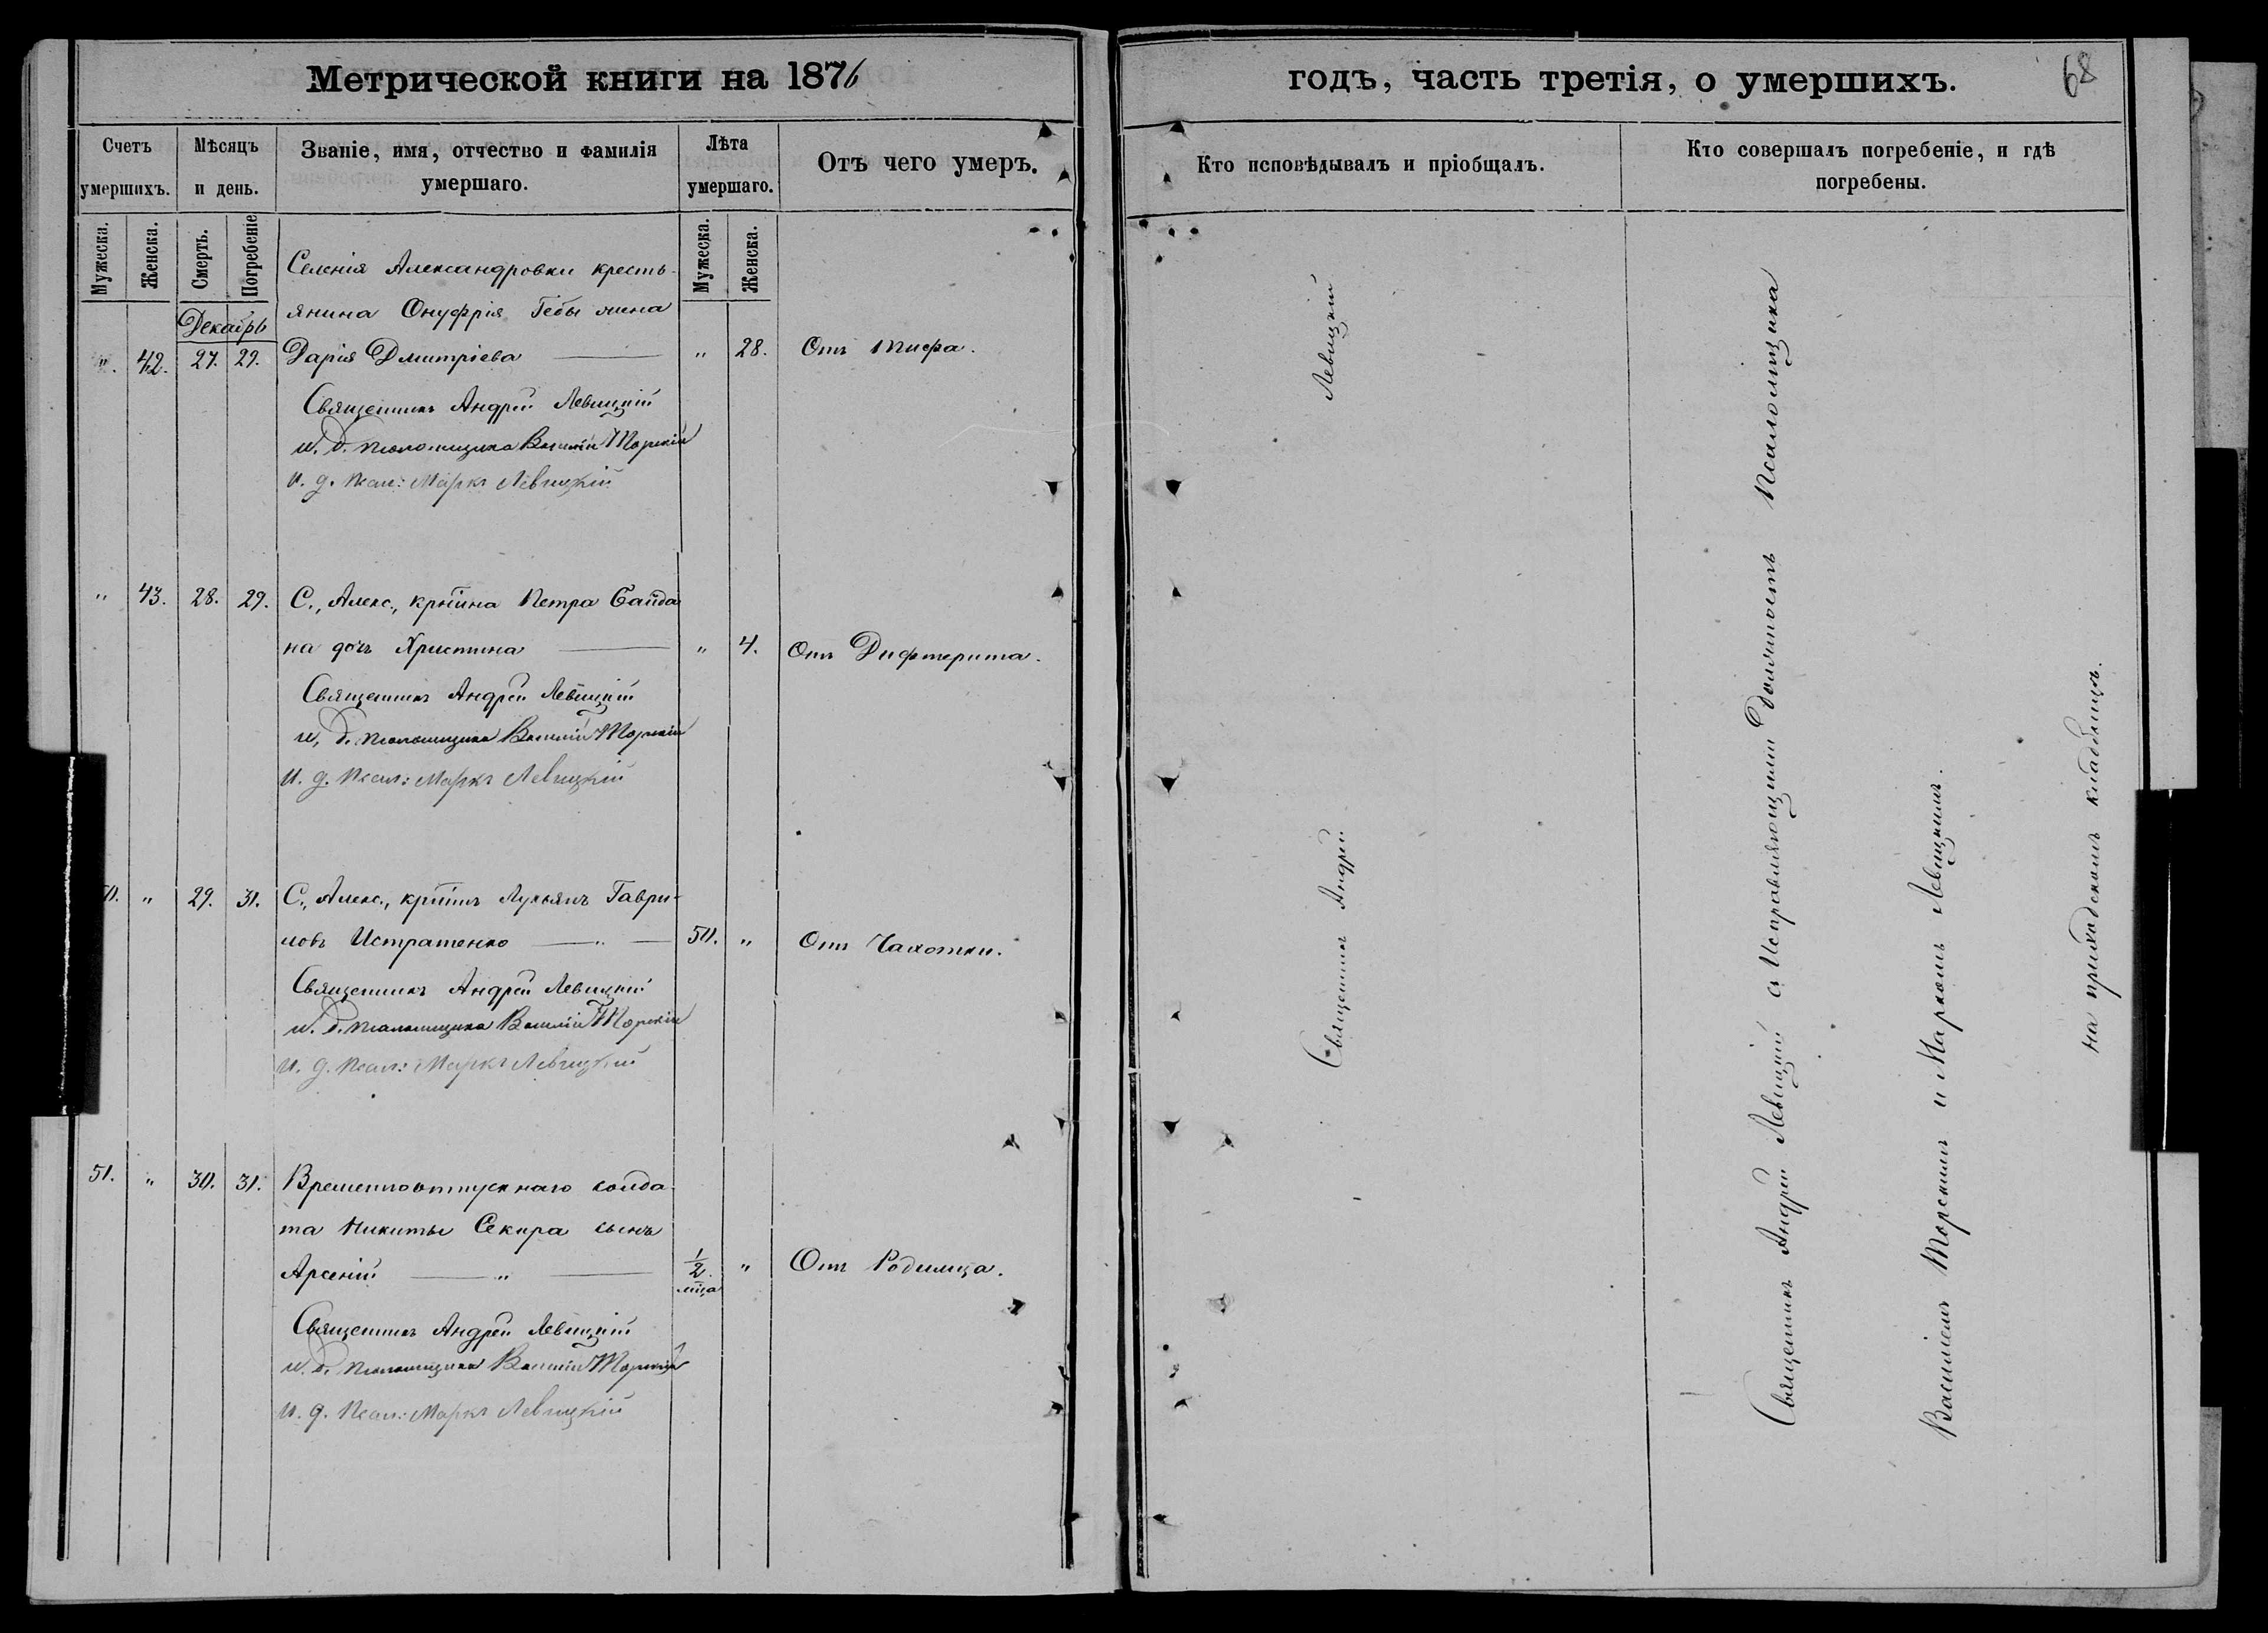 Метрической книги на 1876
Счетъ умершихъ.
Мѣсяцъ и день.
Званіе, имя, отчество и фамилія умершаго.
Лѣта умершаго.
Отъ чего умеръ.
Мужеска.
Женска.
Смерть.
Погребеніе
Мужеска.
Женска.
Декабрь
Селенія Александровки кресть-
янина Онуфрія Гебы жена
" 42. 27. 29. Дарія Дмитріева " 28. Отъ тифа.
Священникъ Андрей Левицкій
и. д. псаломщика Василій Торскій
и. д. псал: Маркъ Левицкій
" 43. 28. 29. С., Алекс., кр͞тина Петра Байда
на дочь Христина " 4. Отъ Дифтерита.
Священникъ Андрей Левицкій
и, д. псаломщика Василій Торскій
И. д. Псал: Маркъ Левицкій
50. " 29. 31. С., Алекс., кр͞тинъ Лукьянъ Гаври-
ловъ Истратенко — " — 50. " Отъ Чахотки.
Священникъ Андрей Левицкій
и. д. псаломщика Василій Торскій
И. д. Псал: Маркъ Левицкій
51. " 30. 31. Временноотпускнаго солда
та Никиты Секира сынъ
Арсеній — " — 1/2 м͞ца " Отъ Родимца.
Священникъ Андрей Левицкій
и. д. псаломщика Василій Торскій
И. д. Псал: Маркъ Левицкій
годъ, часть третія, о умершихъ.
68
Кто исповѣдывалъ и пріобщалъ.
Кто совершалъ погребеніе, и гдѣ погребены.
Священникъ Андрей Левицкій
Священникъ Андрей Левицкій съ Исправляющими Должность Псаломщика
Василіемъ Торскимъ и Маркомъ Левицкимъ.
на приходскомъ кладбищѣ.